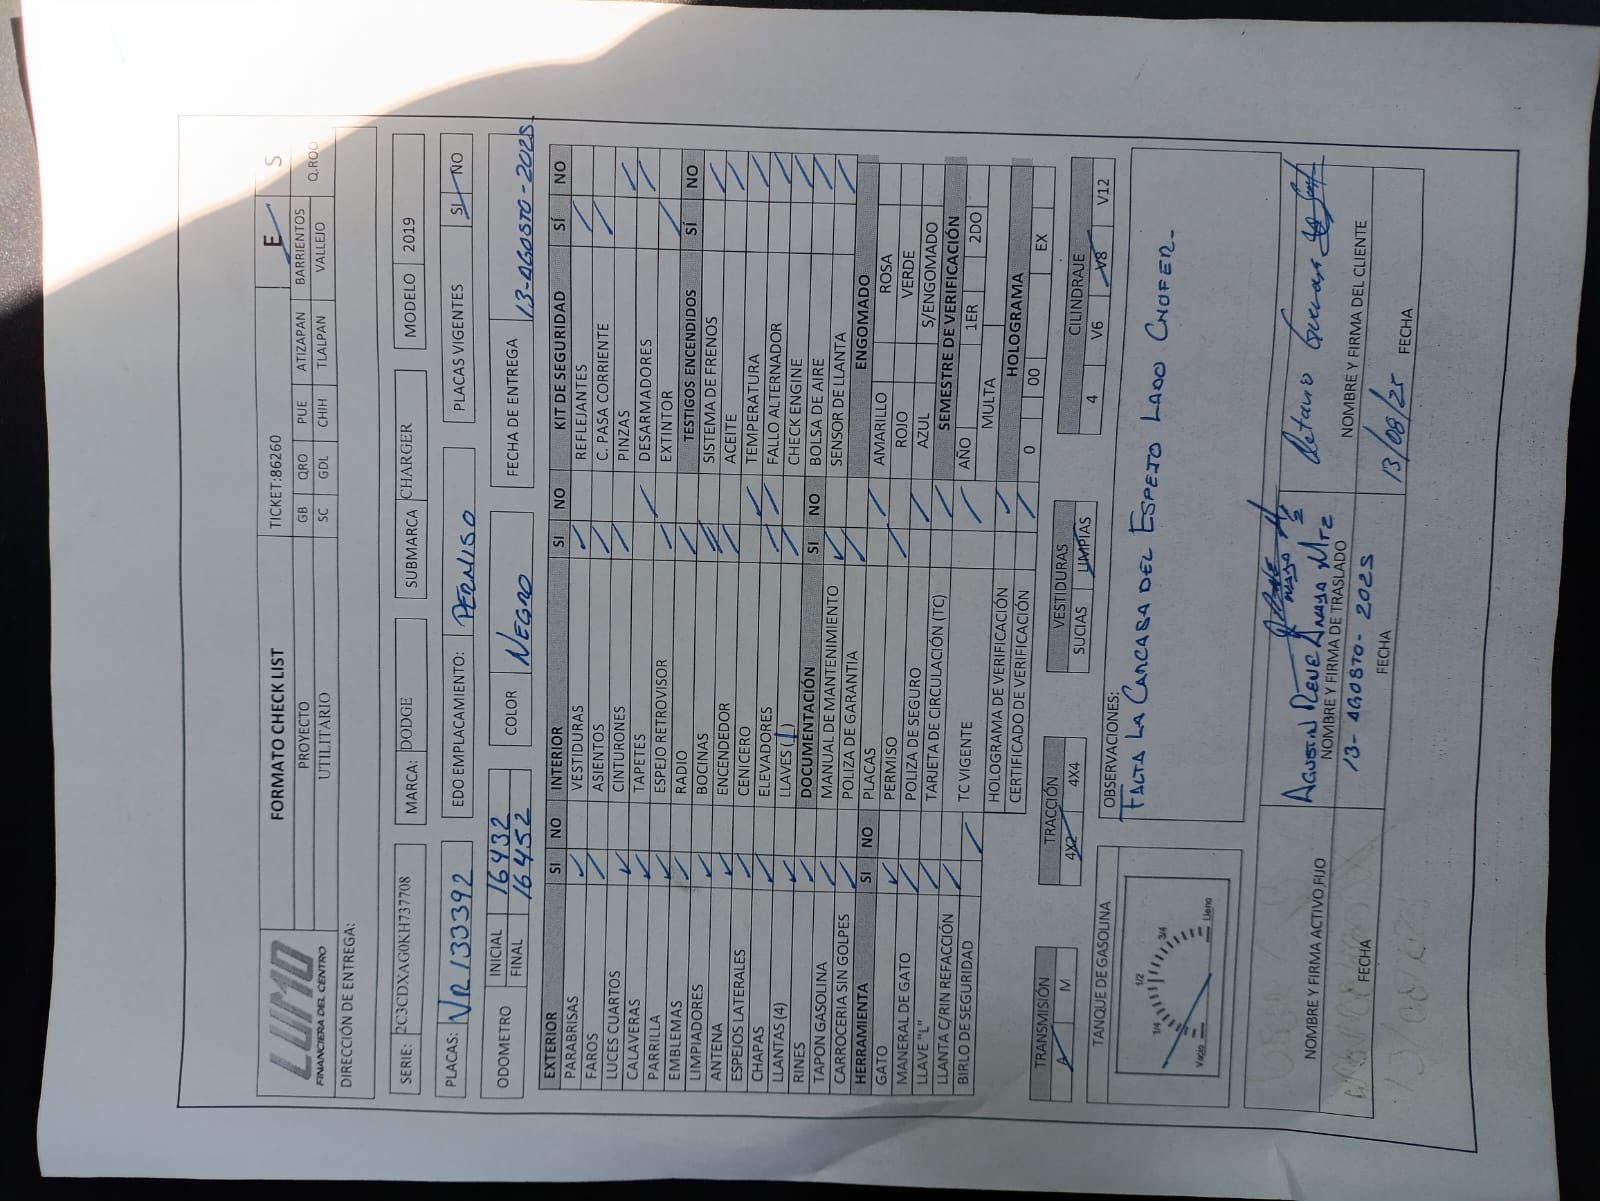 LUMO
FINANCIERA DEL CENTRO
FORMATO CHECK LIST TICKET:86260 E S
PROYECTO GB QRO PUE ATIZAPAN BARRIENTOS Q.ROO
UTILITARIO SC GDL CHIH TLALPAN VALLEJO
DIRECCIÓN DE ENTREGA:
SERIE: 2C3CDXAG0KH737708 MARCA: DODGE SUBMARCA CHARGER MODELO 2019
PLACAS: VR133392 EDO EMPLACAMIENTO: PERMISO PLACAS VIGENTES SI NO
ODOMETRO INICIAL 16432 COLOR NEGRO FECHA DE ENTREGA 13-AGOSTO-2025
FINAL 16452
EXTERIOR SI NO
PARABRISAS ✓
FAROS ✓
LUCES CUARTOS
CALAVERAS ✓
PARRILLA ✓
EMBLEMAS ✓
LIMPIADORES ✓
ANTENA ✓
ESPEJOS LATERALES ✓
CHAPAS ✓
LLANTAS (4) ✓
RINES ✓
TAPON GASOLINA ✓
CARROCERIA SIN GOLPES ✓
HERRAMIENTA SI NO
GATO ✓
MANERAL DE GATO ✓
LLAVE "L" ✓
LLANTA C/RIN REFACCIÓN ✓
BIRLO DE SEGURIDAD ✓
INTERIOR SI NO
VESTIDURAS ✓
ASIENTOS ✓
CINTURONES ✓
TAPETES ✓
ESPEJO RETROVISOR ✓
RADIO ✓
BOCINAS ✓
ENCENDEDOR ✓
CENICERO ✓
ELEVADORES ✓
LLAVES (1) ✓
DOCUMENTACIÓN SI NO
MANUAL DE MANTENIMIENTO ✓
POLIZA DE GARANTIA ✓
PLACAS ✓
PERMISO ✓
POLIZA DE SEGURO ✓
TARJETA DE CIRCULACIÓN (TC) ✓
TC VIGENTE ✓
HOLOGRAMA DE VERIFICACIÓN ✓
CERTIFICADO DE VERIFICACIÓN ✓
KIT DE SEGURIDAD SÍ NO
REFLEJANTES ✓
C. PASA CORRIENTE ✓
PINZAS ✓
DESARMADORES ✓
EXTINTOR ✓
TESTIGOS ENCENDIDOS SÍ NO
SISTEMA DE FRENOS ✓
ACEITE ✓
TEMPERATURA ✓
FALLO ALTERNADOR ✓
CHECK ENGINE ✓
BOLSA DE AIRE ✓
SENSOR DE LLANTA ✓
ENGOMADO
AMARILLO ROSA
ROJO VERDE
AZUL S/ENGOMADO
SEMESTRE DE VERIFICACIÓN
AÑO 1ER 2DO
MULTA
HOLOGRAMA
0 00 EX
TRANSMISIÓN TRACCIÓN VESTIDURAS CILINDRAJE
A M 4X2 4X4 SUCIAS LIMPIAS 4 V6 V8 V12
TANQUE DE GASOLINA
Vacio 1/4 1/2 3/4 Lleno
OBSERVACIONES:
FALTA LA CARCASA DEL ESPEJO LADO CHOFER-
NOMBRE Y FIRMA ACTIVO FIJO
FECHA
AGUSTIN RENE ANAYA MTZ
NOMBRE Y FIRMA DE TRASLADO
13-AGOSTO-2025
FECHA
NOMBRE Y FIRMA DEL CLIENTE
13/08/25
FECHA